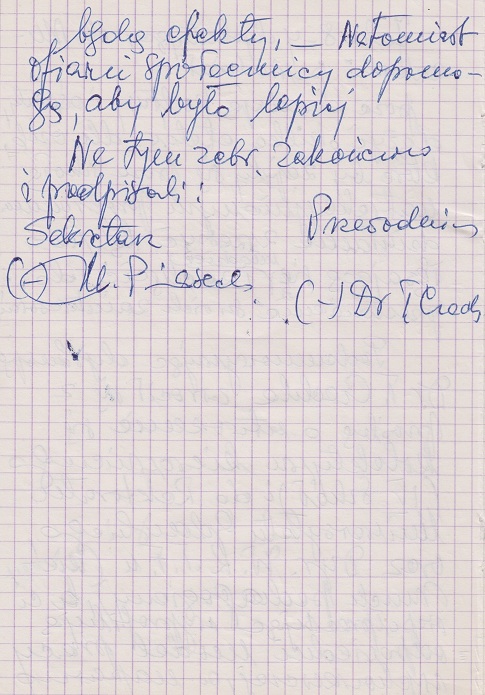 będą efekty, — Natomiast
ofiarni społecznicy dopomo-
gą, aby było lepiej
Na tym zebr. zakończono
i podpisali:
Sekretarz Przewodnin
(-) M. P (-) Dr T